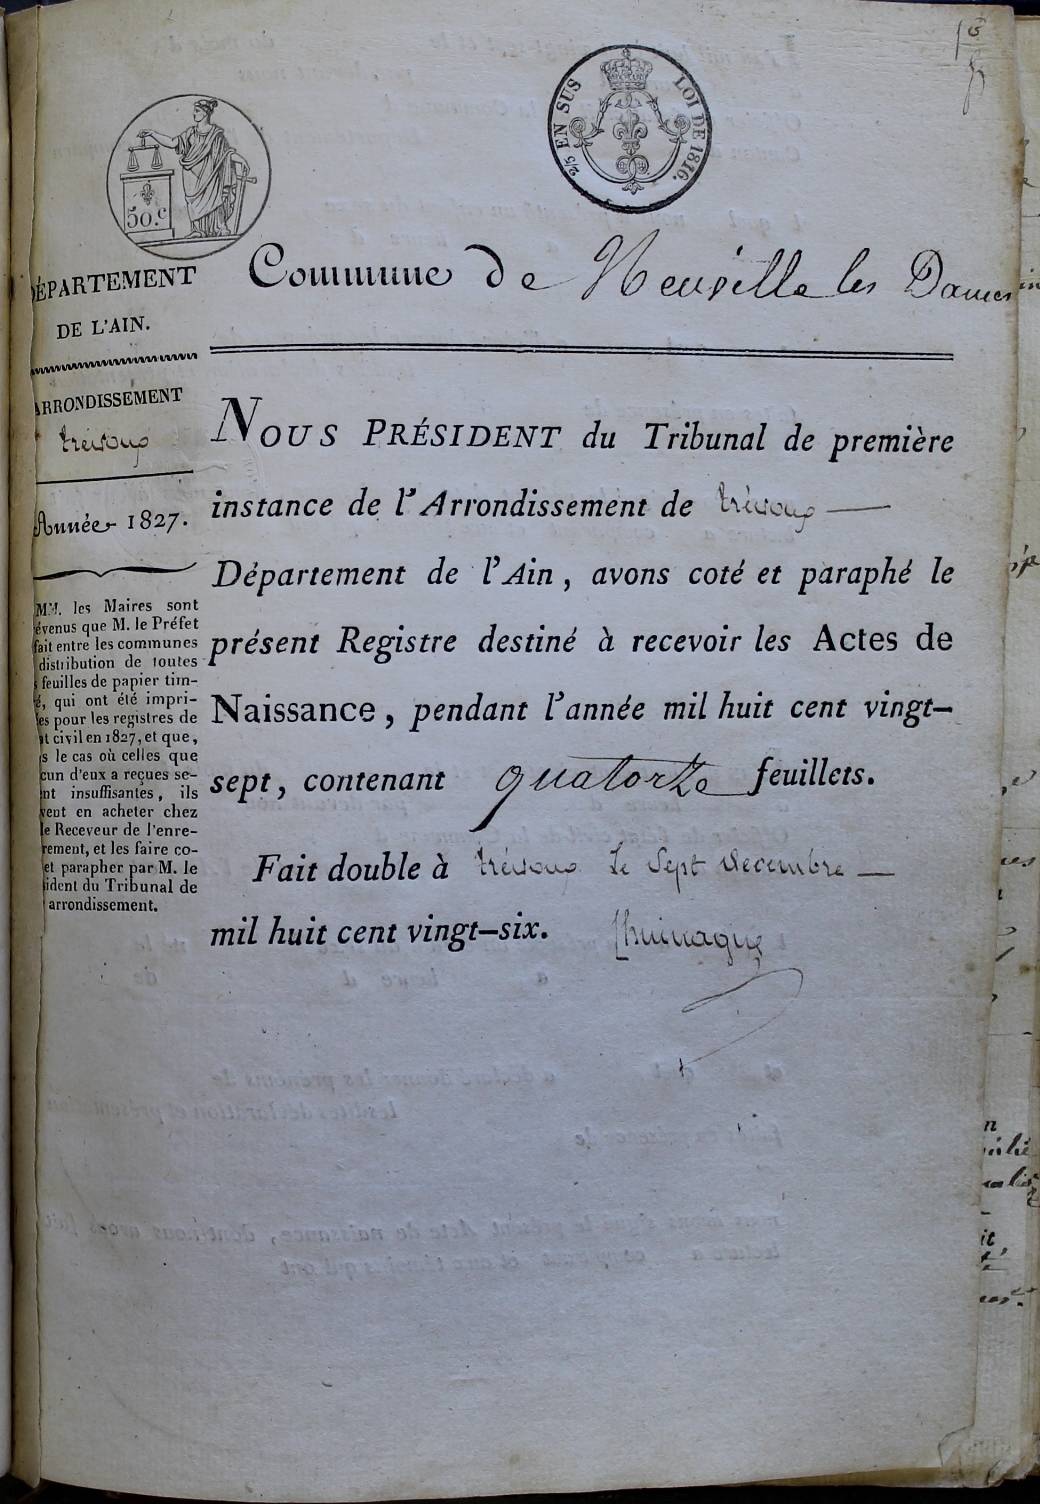 1er
2/5 EN SUS LOI DE 1816.
50.c
DÉPARTEMENT
DE L'AIN.
ARRONDISSEMENT
trévoux
Année 1827.
MM. les Maires sont
évenus que M. le Préfet
fait entre les communes
distribution de toutes
s feuilles de papier tim-
é, qui ont été impri-
es pour les registres de
at civil en 1827, et que,
s le cas où celles que
cun d'eux a reçues se-
ent insuffisantes, ils
vent en acheter chez
le Receveur de l'enre-
rement, et les faire co-
et parapher par M. le
sident du Tribunal de
arrondissement.
Commune de Neuville les Dames
NOUS PRÉSIDENT du Tribunal de première
instance de l'Arrondissement de trévoux —
Département de l'Ain, avons coté et paraphé le
présent Registre destiné à recevoir les Actes de
Naissance, pendant l'année mil huit cent vingt-
sept, contenant quatorze feuillets.
Fait double à trévoux le Sept decembre —
mil huit cent vingt-six.